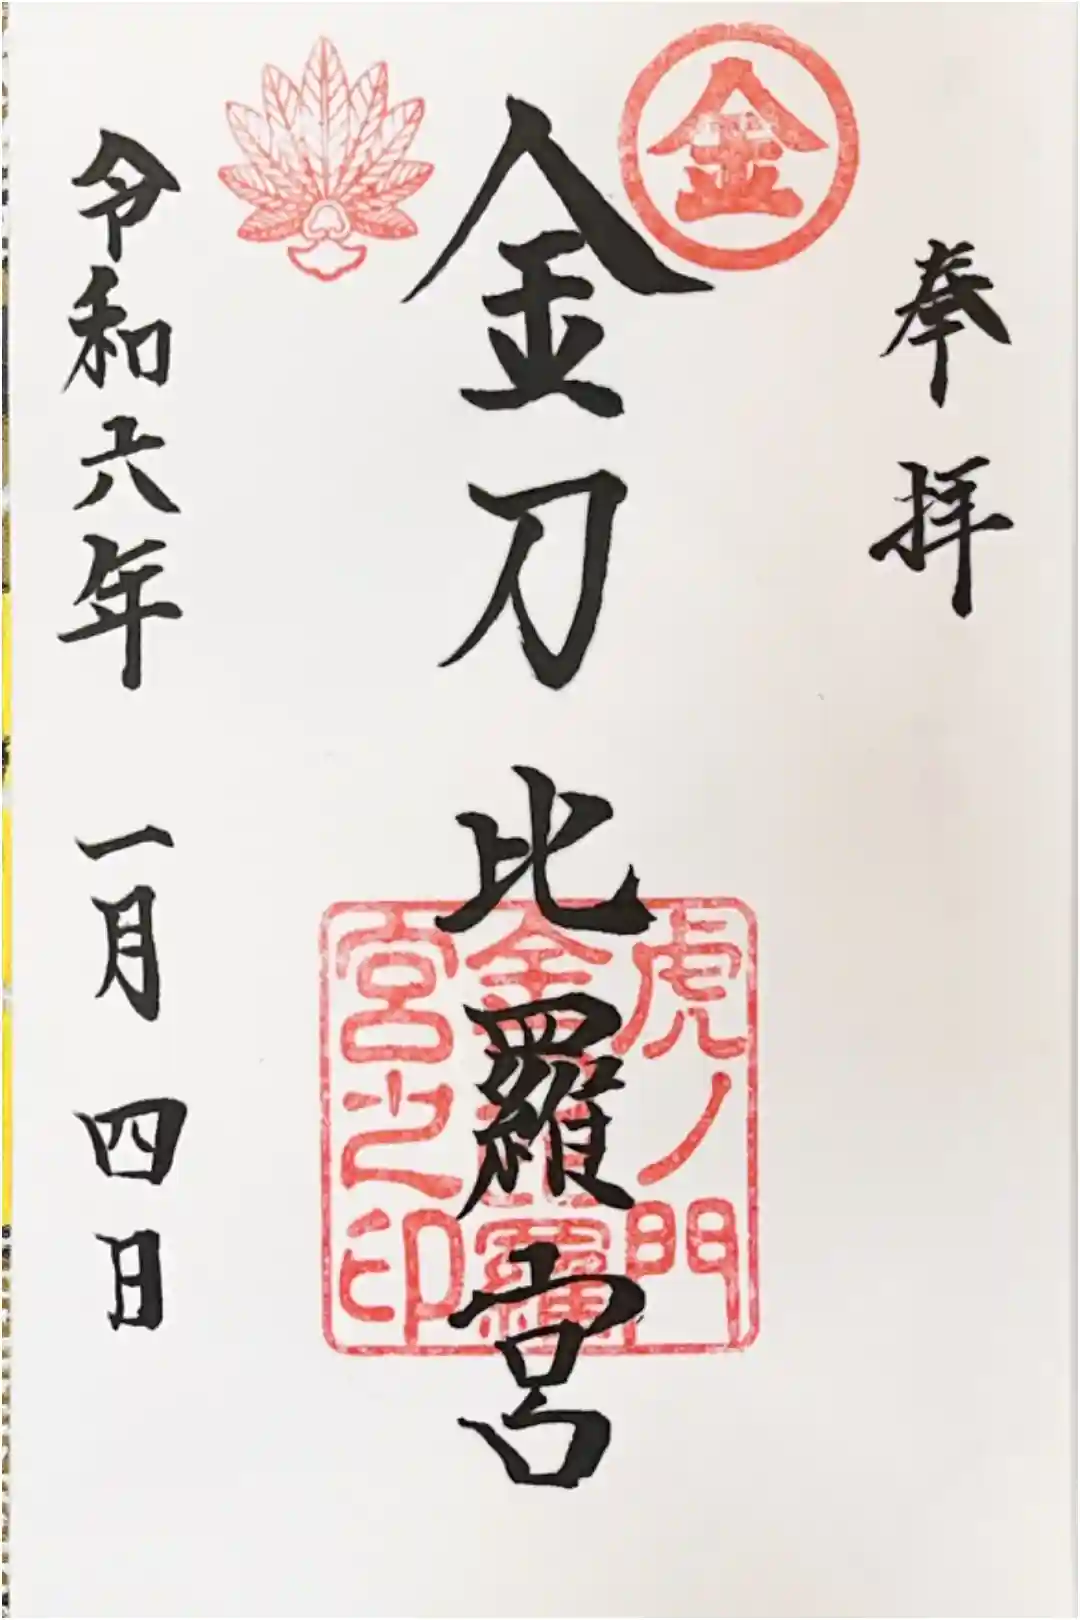 奉拝
金
金刀比羅宮
虎ノ門
金刀比羅
宮之印
令和六年 一月 四日